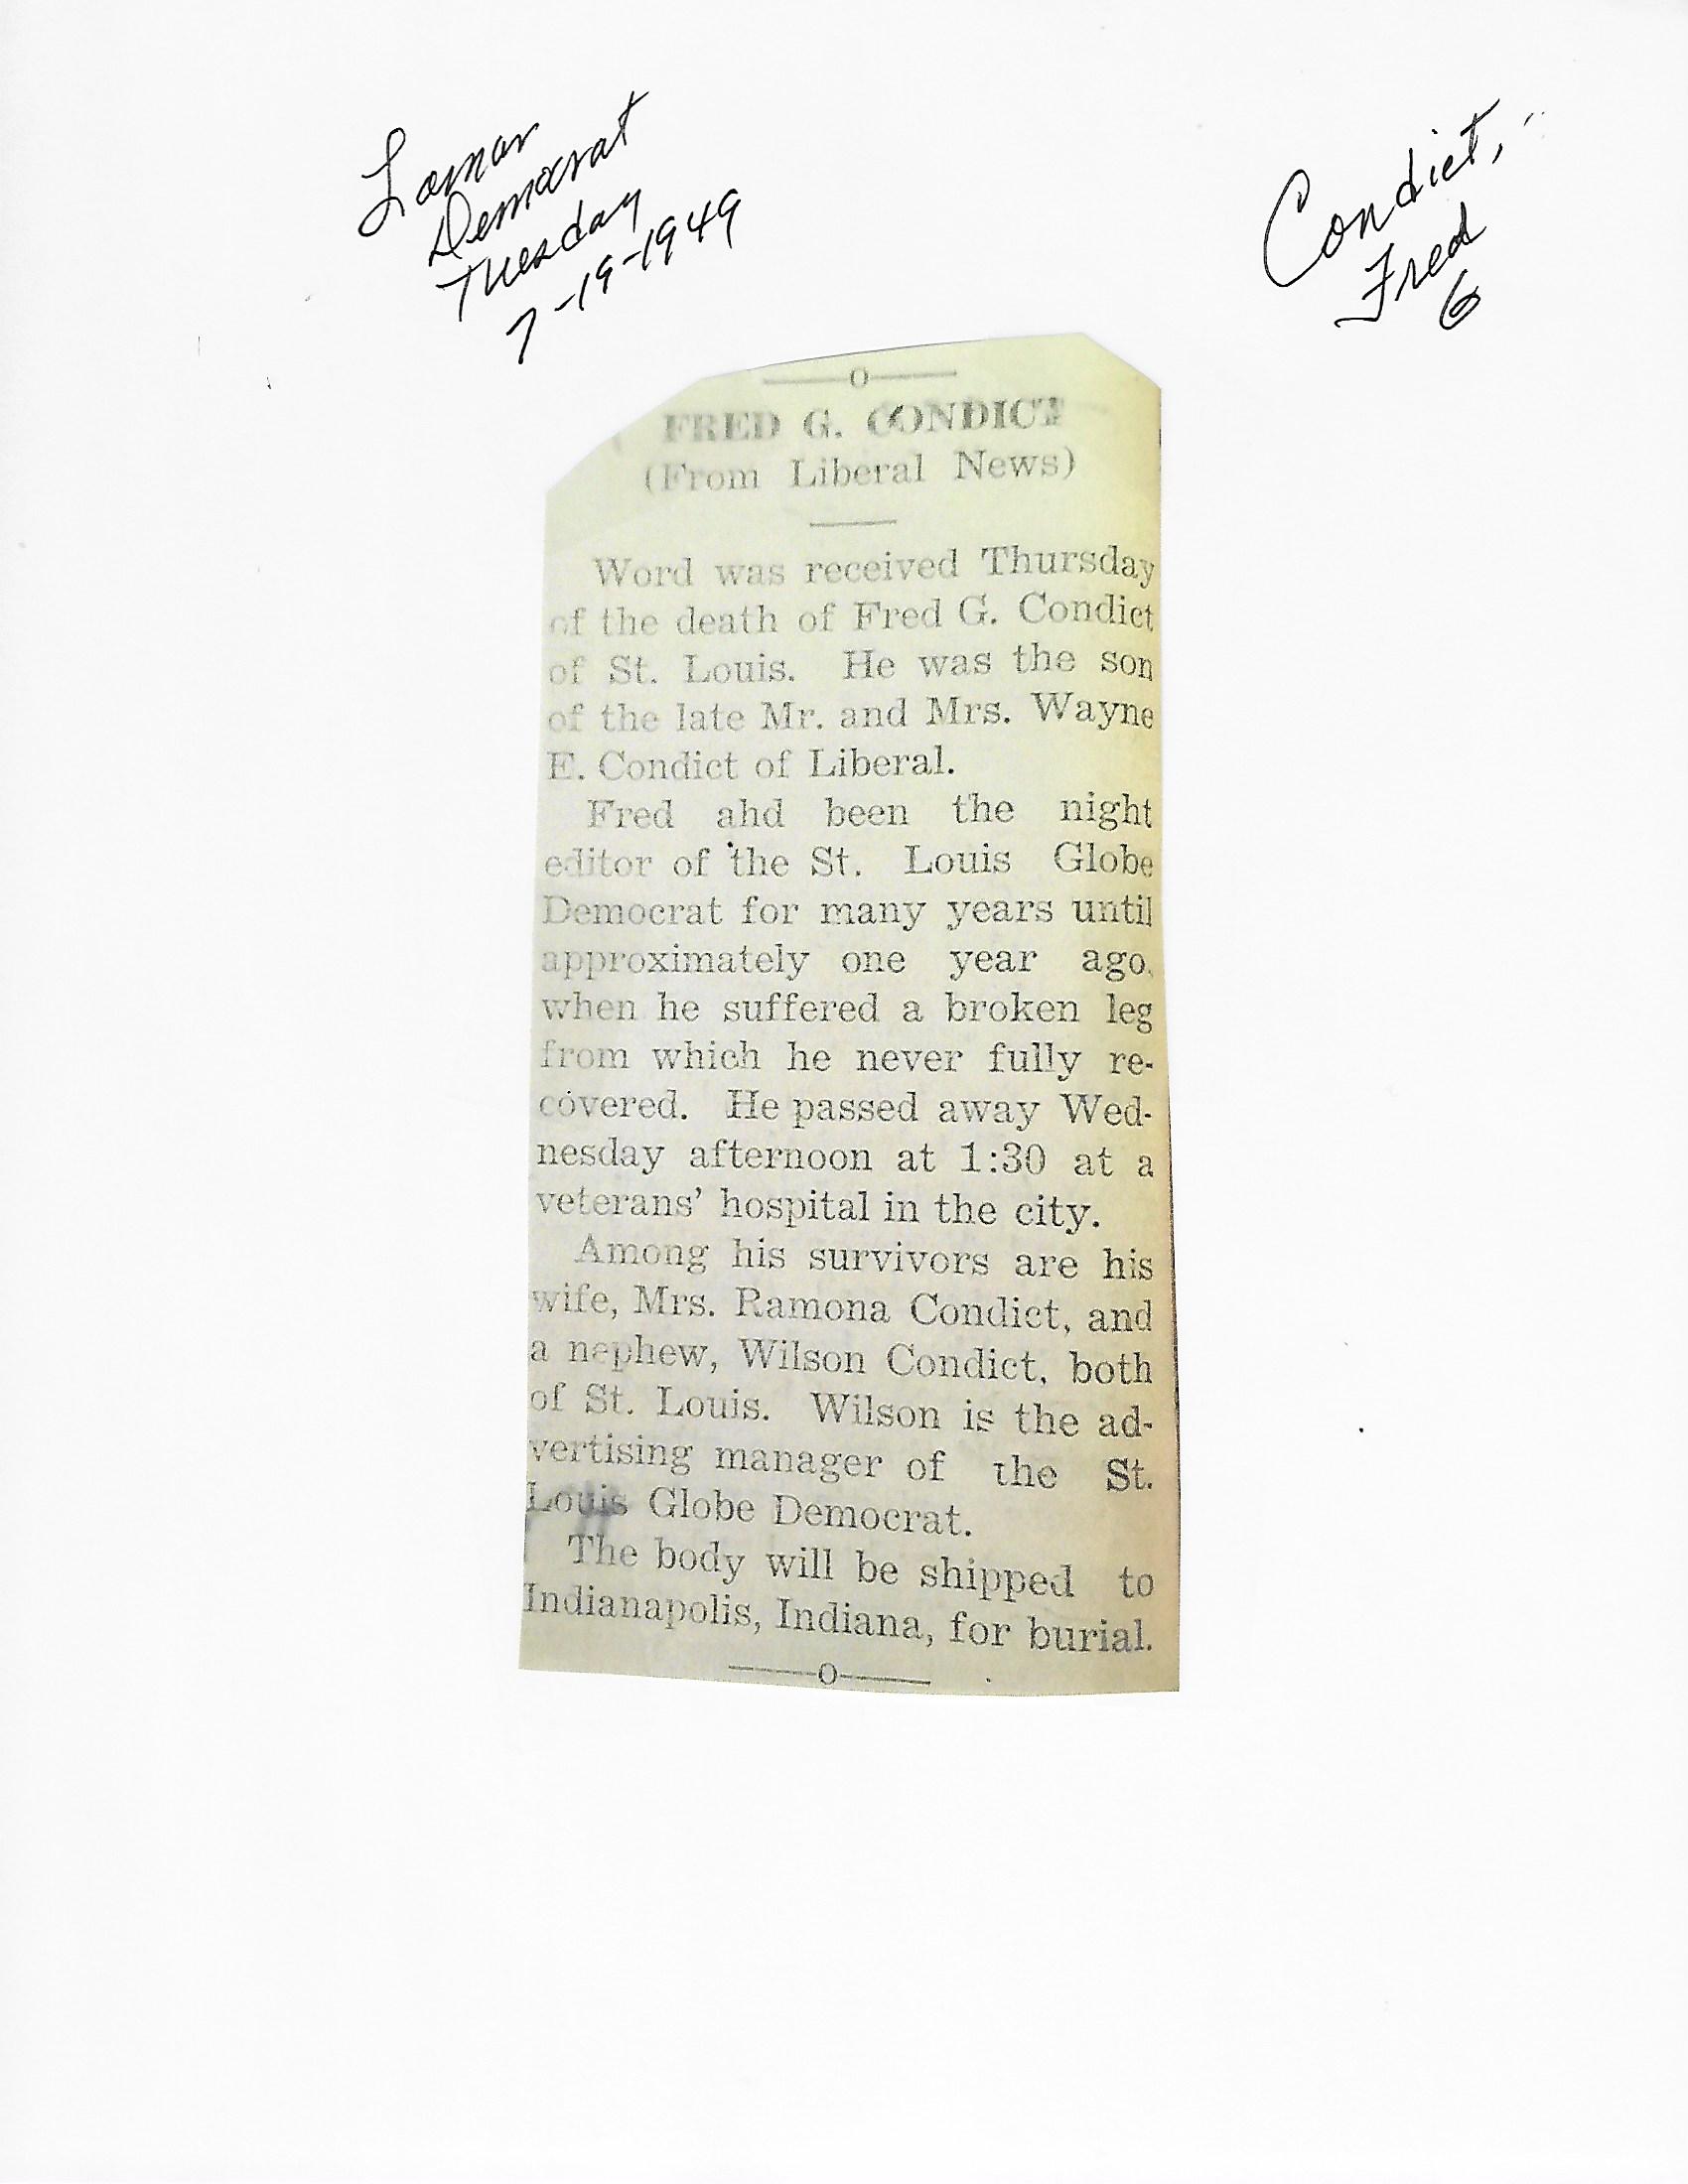 Lamar
Democrat
Tuesday
7-19-1949
Condict,
Fred
G
FRED G. CONDICT
(From Liberal News)
Word was received Thursday
of the death of Fred G. Condict
of St. Louis. He was the son
of the late Mr. and Mrs. Wayne
E. Condict of Liberal.
Fred ahd been the night
editor of the St. Louis Globe
Democrat for many years until
approximately one year ago,
when he suffered a broken leg
from which he never fully re-
covered. He passed away Wed-
nesday afternoon at 1:30 at a
veterans' hospital in the city.
Among his survivors are his
wife, Mrs. Ramona Condict, and
a nephew, Wilson Condict, both
of St. Louis. Wilson is the ad-
vertising manager of the St.
Louis Globe Democrat.
The body will be shipped to
Indianapolis, Indiana, for burial.